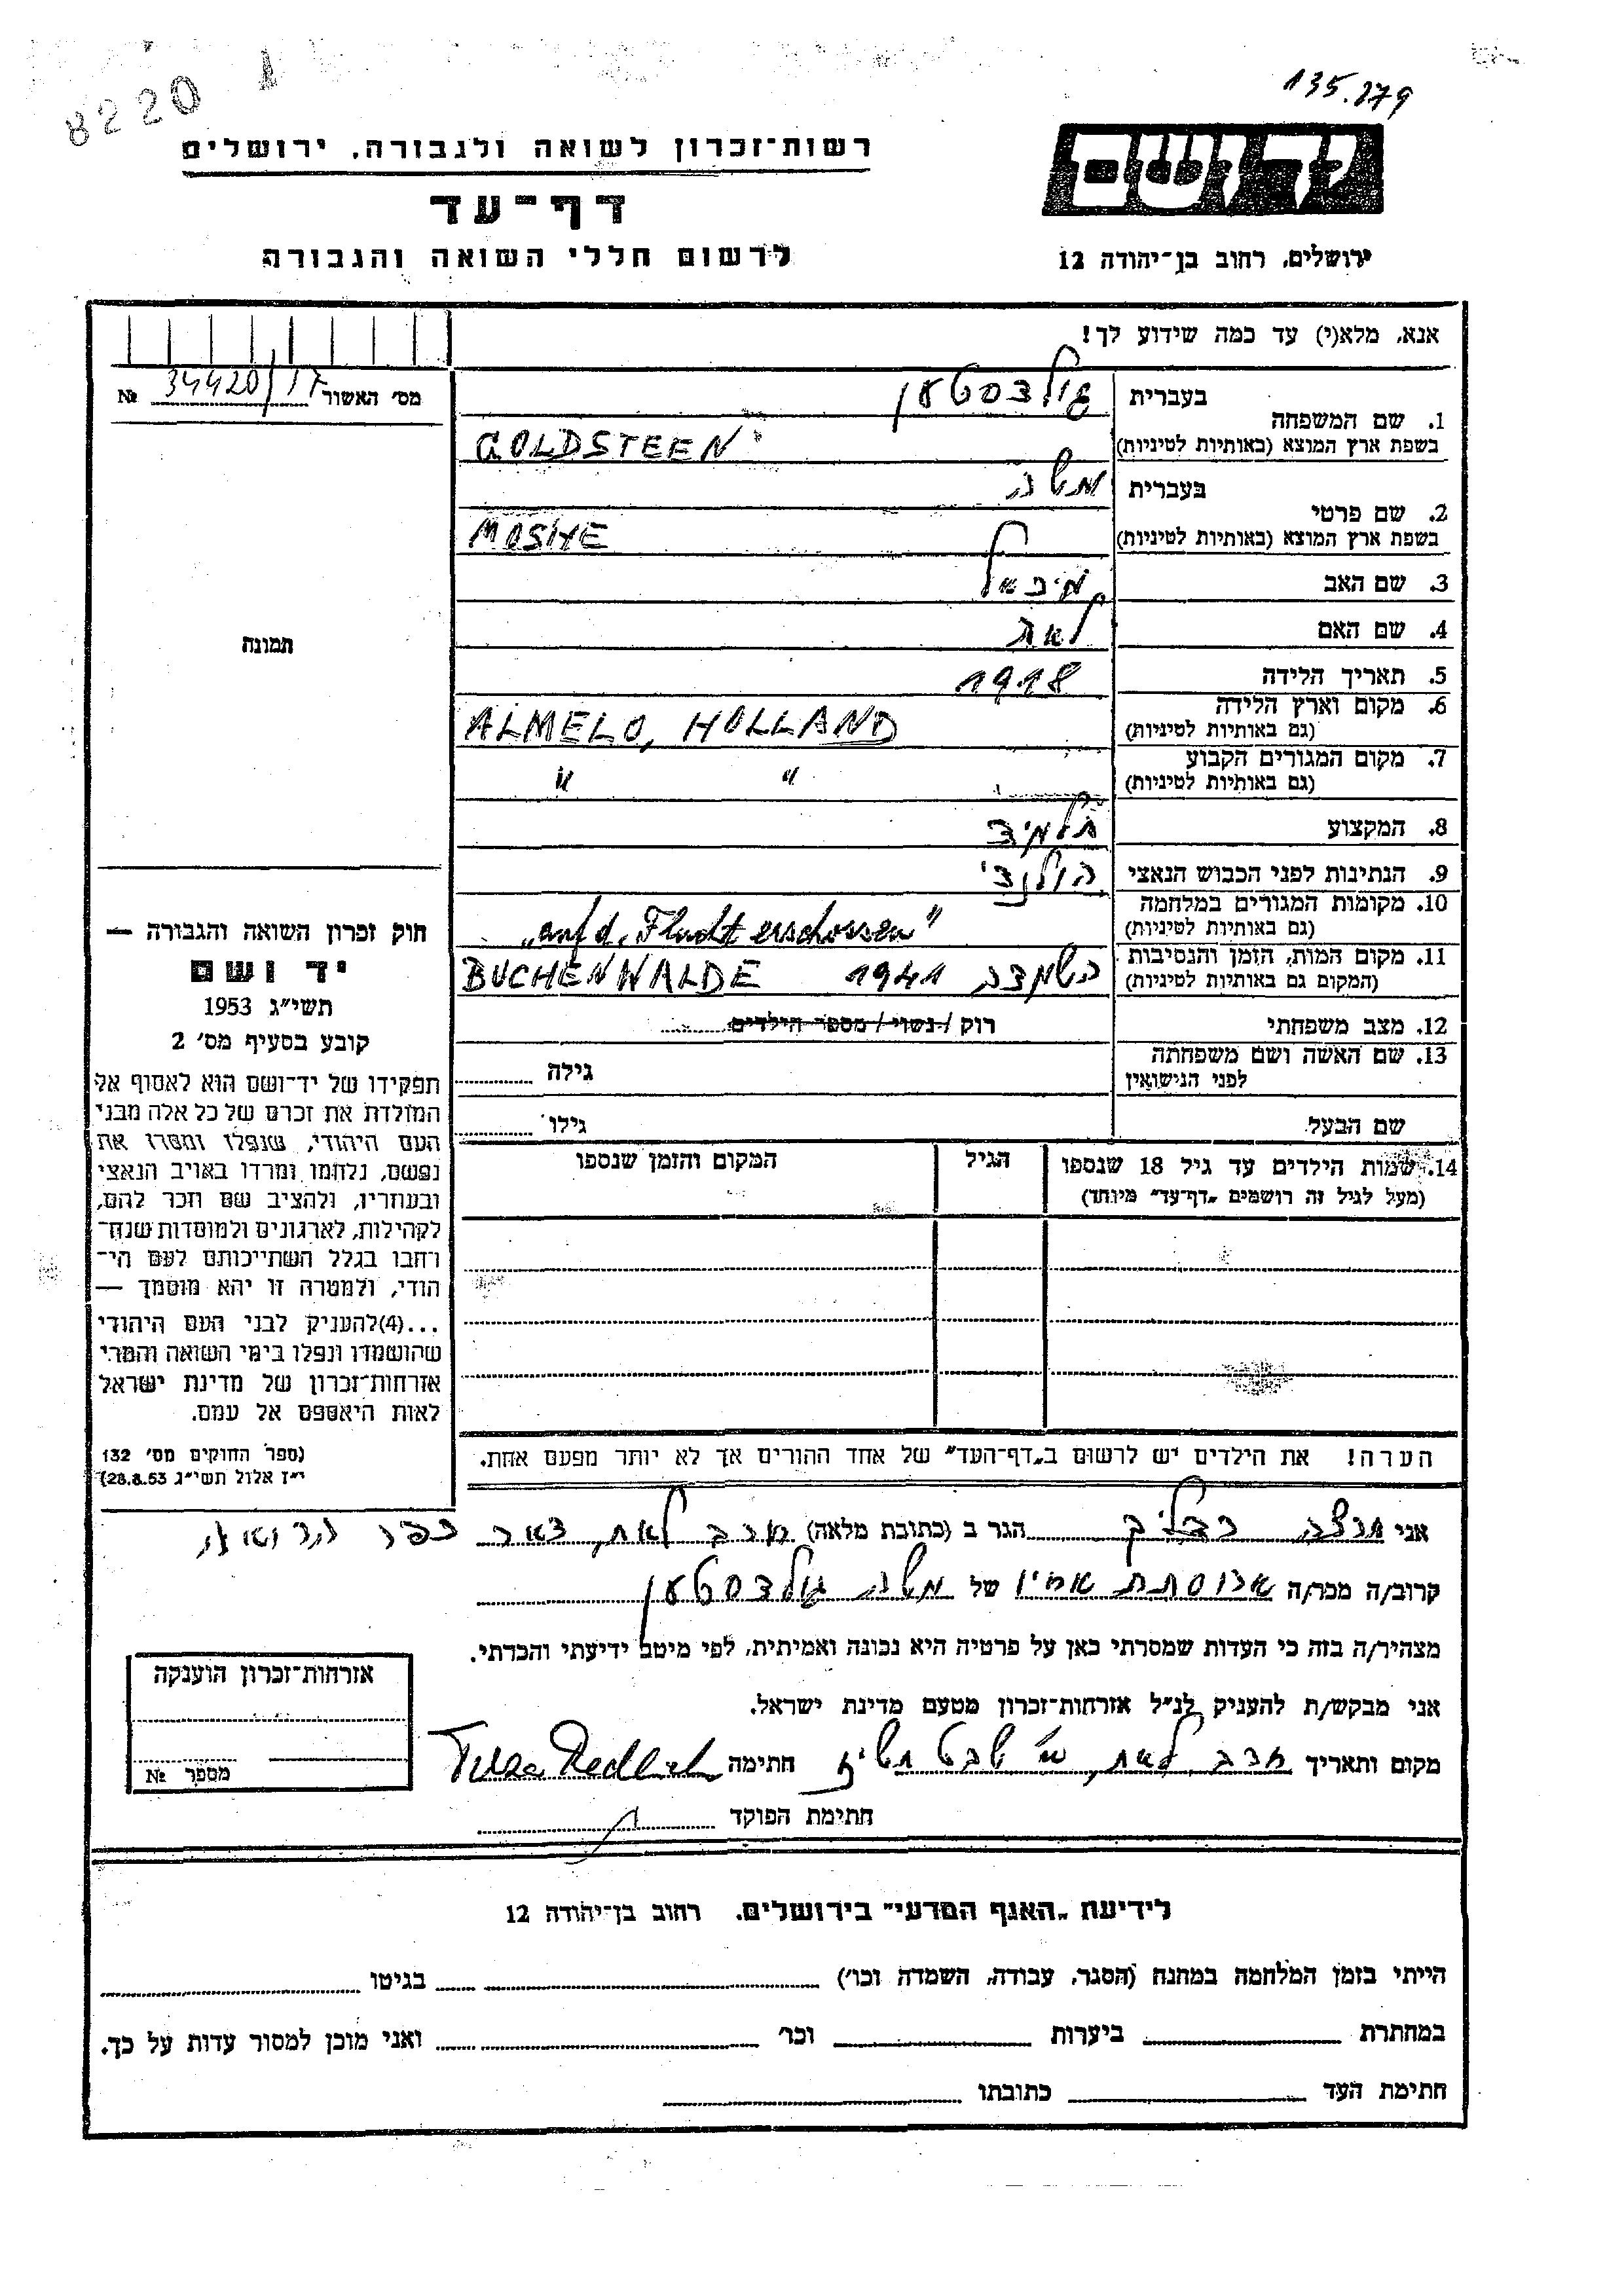 8220
135.279
ידושם
רשות־זכרון לשואה ולגבורה, ירושלים
דף־עד
לרשום חללי השואה והגבורה
ירושלים, רחוב בן־יהודה 12
אנא, מלא(י) עד כמה שידוע לך!
מס׳ האשור 34420/17 №
בעברית גולדסטען
1. שם המשפחה
בשפת ארץ המוצא (באותיות לטיניות) GOLDSTEEN
בעברית משה
2. שם פרטי
בשפת ארץ המוצא (באותיות לטיניות) MOSHE
3. שם האב מיכאל
4. שם האם לאה
5. תאריך הלידה 1918
6. מקום וארץ הלידה
(גם באותיות לטיניות) ALMELO, HOLLAND
7. מקום המגורים הקבוע
(גם באותיות לטיניות) " "
8. המקצוע תלמיד
9. הנתינות לפני הכבוש הנאצי הולנדי
10. מקומות המגורים במלחמה
(גם באותיות לטיניות) „auf d. Flucht erschossen"
11. מקום המות, הזמן והנסיבות
(המקום גם באותיות לטיניות) השמדה 1941 BUCHENWALDE
12. מצב משפחתי רוק / נשוי / מספר הילדים
13. שם האשה ושם משפחתה
לפני הנישואין גילה
שם הבעל גילו
14. שמות הילדים עד גיל 18 שנספו
(מעל לגיל זה רושמים „דף־עד" מיוחד)
הגיל
המקום והזמן שנספו
תמונה
חוק זכרון השואה והגבורה —
יד ושם
תשי״ג 1953
קובע בסעיף מס׳ 2
תפקידו של יד־ושם הוא לאסוף אל
המולדת את זכרם של כל אלה מבני
העם היהודי, שנפלו ומסרו את
נפשם, נלחמו ומרדו באויב הנאצי
ובעוזריו, ולהציב שם וזכר להם,
לקהילות, לארגונים ולמוסדות שנח־
רבו בגלל השתייכותם לעם הי־
הודי, ולמטרה זו יהא מוסמך —
...(4)להעניק לבני העם היהודי
שהושמדו ונפלו בימי השואה והמרי
אזרחות־זכרון של מדינת ישראל
לאות היאספם אל עמם.
(ספר החוקים מס׳ 132
י״ז אלול תשי״ג 28.8.53)
הערה! את הילדים יש לרשום ב„דף־העד" של אחד ההורים אך לא יותר מפעם אחת.
אני רדליך הגר ב (כתובת מלאה) דאר כפר הרואה
קרוב/ה מכר/ה של משה גולדסטען
מצהיר/ה בזה כי העדות שמסרתי כאן על פרטיה היא נכונה ואמיתית, לפי מיטב ידיעתי והכרתי.
אני מבקש/ת להעניק לנ״ל אזרחות־זכרון מטעם מדינת ישראל.
מקום ותאריך שבט חתימה Redlich
חתימת הפוקד
אזרחות־זכרון הוענקה
מספר №
לידיעת „האגף המדעי" בירושלים, רחוב בן־יהודה 12
הייתי בזמן המלחמה במחנה (הסגר, עבודה, השמדה וכו׳) בגיטו
במחתרת ביערות וכו׳ ואני מוכן למסור עדות על כך.
חתימת העד כתובתו